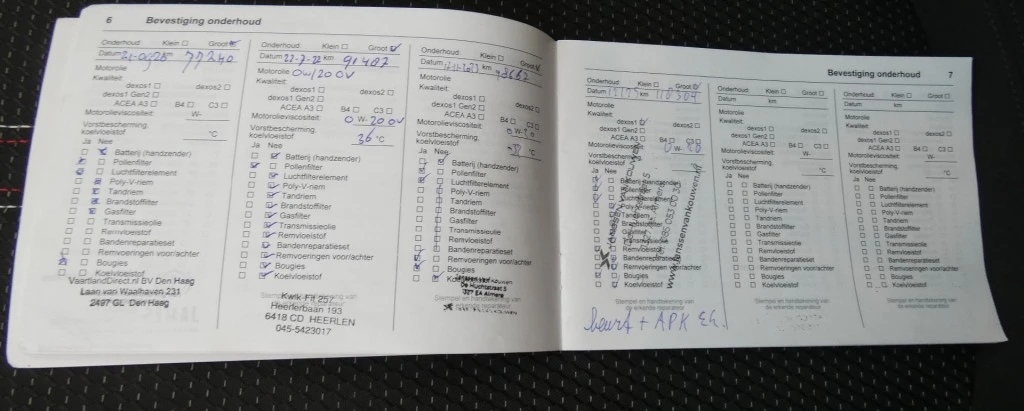 6 Bevestiging onderhoud
Onderhoud: Klein Groot
Datum 77240
Motorolie
Kwaliteit:
dexos1 dexos2
dexos1 Gen2
ACEA A3 B4 C3
Motorolieviscositeit: W-
Vorstbescherming koelvloeistof °C
Ja Nee
Batterij (handzender)
Pollenfilter
Luchtfilterelement
Poly-V-riem
Tandriem
Brandstoffilter
Gasfilter
Transmissieolie
Remvloeistof
Bandenreparatieset
Remvoeringen voor/achter
Bougies
Koelvloeistof
VaartlandDirect.nl BV Den Haag
Laan van Waalhaven 231
2497 GL Den Haag
Onderhoud: Klein Groot
Datum 27-7-22 km 91407
Motorolie 0W/20 OV
Kwaliteit:
dexos1 dexos2
dexos1 Gen2
ACEA A3 B4 C3
Motorolieviscositeit: 0 W- 20 OV
Vorstbescherming koelvloeistof 36 °C
Ja Nee
Batterij (handzender)
Pollenfilter
Luchtfilterelement
Poly-V-riem
Tandriem
Brandstoffilter
Gasfilter
Transmissieolie
Remvloeistof
Bandenreparatieset
Remvoeringen voor/achter
Bougies
Koelvloeistof
Kwik-Fit 257
Heerlerbaan 193
6418 CD HEERLEN
045-5423017
Onderhoud: Klein Groot
Datum km
Motorolie
Kwaliteit:
dexos1 dexos2
dexos1 Gen2
ACEA A3 B4 C3
Motorolieviscositeit: W-
Vorstbescherming koelvloeistof °C
Ja Nee
Batterij (handzender)
Pollenfilter
Luchtfilterelement
Poly-V-riem
Tandriem
Brandstoffilter
Gasfilter
Transmissieolie
Remvloeistof
Bandenreparatieset
Remvoeringen voor/achter
Bougies
Koelvloeistof
Almere
Bevestiging onderhoud 7
Onderhoud: Klein Groot
Datum km 110304
Motorolie
Kwaliteit:
dexos1 dexos2
dexos1 Gen2
ACEA A3 B4 C3
Motorolieviscositeit: W-
Vorstbescherming koelvloeistof °C
Ja Nee
Batterij (handzender)
Pollenfilter
Luchtfilterelement
Poly-V-riem
Tandriem
Brandstoffilter
Gasfilter
Transmissieolie
Remvloeistof
Bandenreparatieset
Remvoeringen voor/achter
Bougies
Koelvloeistof
www.janssenvankouwen.nl
Stempel en handtekening van de erkende reparateur
beurt + APK
Onderhoud: Klein Groot
Datum km
Motorolie
Kwaliteit:
dexos1 dexos2
dexos1 Gen2
ACEA A3 B4 C3
Motorolieviscositeit: W-
Vorstbescherming koelvloeistof °C
Ja Nee
Batterij (handzender)
Pollenfilter
Luchtfilterelement
Poly-V-riem
Tandriem
Brandstoffilter
Gasfilter
Transmissieolie
Remvloeistof
Bandenreparatieset
Remvoeringen voor/achter
Bougies
Koelvloeistof
Stempel en handtekening van de erkende reparateur
Onderhoud: Klein Groot
Datum km
Motorolie
Kwaliteit:
dexos1 dexos2
dexos1 Gen2
ACEA A3 B4 C3
Motorolieviscositeit: W-
Vorstbescherming koelvloeistof °C
Ja Nee
Batterij (handzender)
Pollenfilter
Luchtfilterelement
Poly-V-riem
Tandriem
Brandstoffilter
Gasfilter
Transmissieolie
Remvloeistof
Bandenreparatieset
Remvoeringen voor/achter
Bougies
Koelvloeistof
Stempel en handtekening van de erkende reparateur